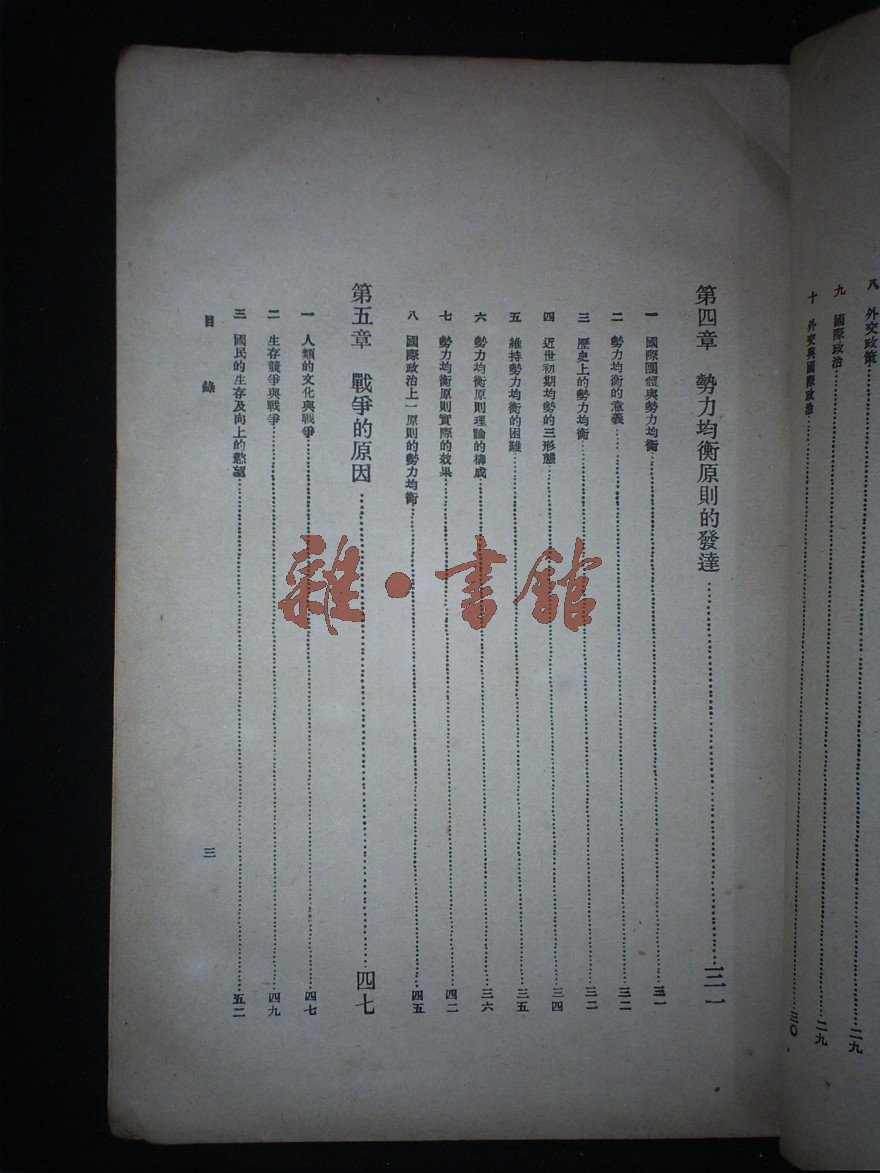 八 外交政策……二九
九 國際政治……二九
十 外交與國際政治……三〇
第四章 勢力均衡原則的發達……三一
一 國際團體與勢力均衡……三一
二 勢力均衡的意義……三二
三 歷史上的勢力均衡……三二
四 近世初期均勢的三形態……三四
五 維持勢力均衡的困難……三五
六 勢力均衡原則理論的構成……三六
七 勢力均衡原則實際的效果……四二
八 國際政治上一原則的勢力均衡……四五
第五章 戰爭的原因……四七
一 人類的文化與戰爭……四七
二 生存競爭與戰爭……四九
三 國民的生存及向上的慾望……五二
目錄
三
雜·書館